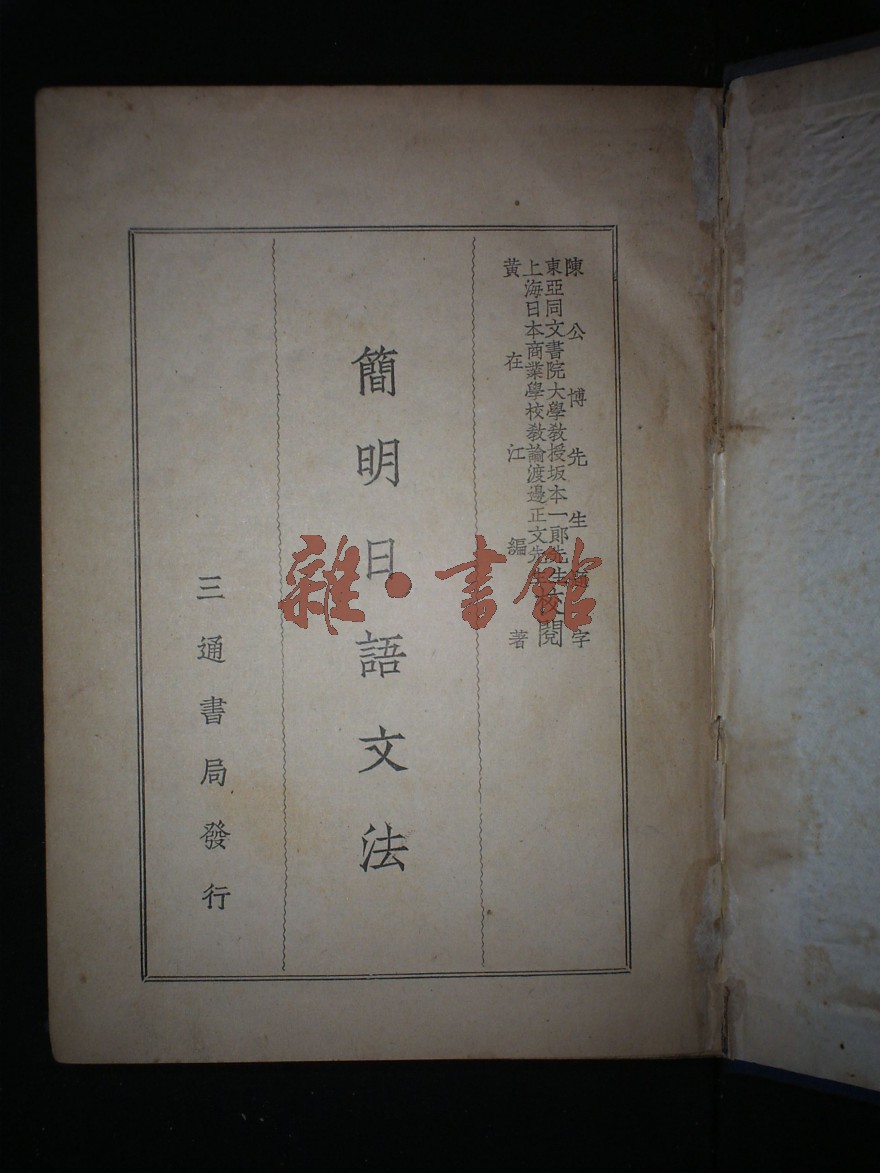 陳公博先生字
東亞同文書院大學教授坂本一郎先生校閱
上海日本商業學校教諭渡邊正文先
黃在江編著
簡明日語文法
三通書局發行
雜·書館